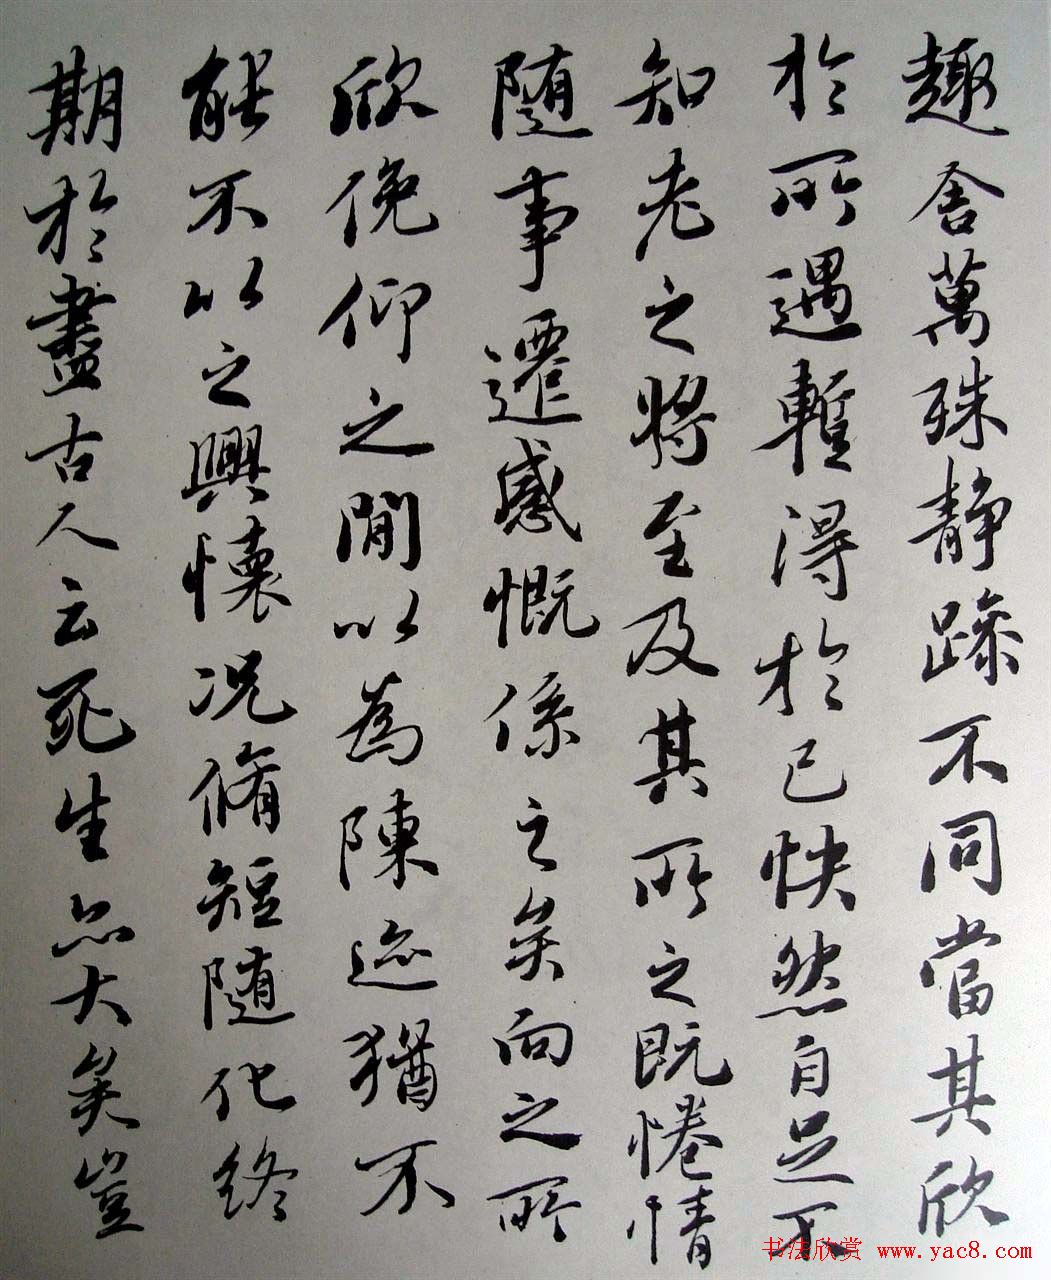 趣舍萬殊靜躁不同當其欣
於所遇暫得於己快然自足不
知老之將至及其所之既惓情
隨事遷感慨係之矣向之所
欣俛仰之閒以為陳迹猶不
能不以之興懷況脩短隨化終
期於盡古人云死生亦大矣豈
书法欣赏 www.yac8.com